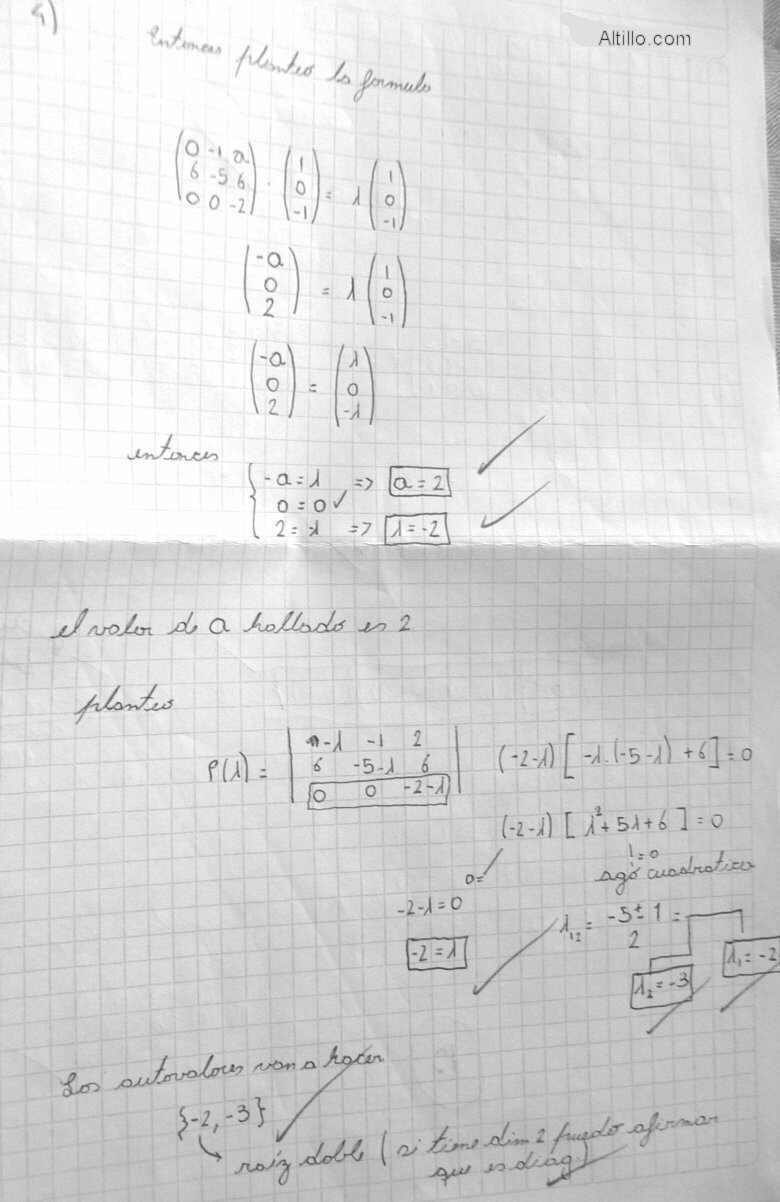 Altillo.com
4)
Entonces planteo la formula
(0 -1 a; 6 -5 6; 0 0 -2) · (1; 0; -1) = λ (1; 0; -1)
(-a; 0; 2) = λ (1; 0; -1)
(-a; 0; 2) = (λ; 0; -λ)
entonces
{ -a = λ => a = 2
0 = 0 ✓
2 = -λ => λ = -2
el valor de a hallado es 2
planteo
P(λ) = | -λ -1 2; 6 -5-λ 6; 0 0 -2-λ | (-2-λ) [ -λ.(-5-λ) + 6 ] = 0
(-2-λ) [ λ² + 5λ + 6 ] = 0
0= | = 0
ago cuadratica
-2-λ = 0
-2 = λ
λ₁₂ = (-5 ± 1)/2 =
λ₁ = -2
λ₂ = -3
Los autovalores van a hacer
{-2, -3}
raíz doble (si tiene dim 2 puedo afirmar
que es diag)